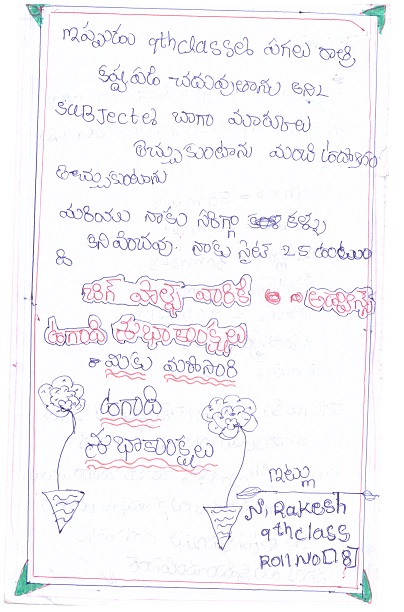 ఇప్పుడు 9thclassలో పగలు రాత్రి
కష్టపడి చదువుతాను అన్ని
SUBJectలో బాగా మార్కులు
తెచ్చుకుంటాను మంచి ఉద్యోగం
తెచ్చుకుంటాను
మరియు నాకు సరిగ్గా కళ్ళు
కనిపించవు. నాకు సైట్ 25 ఉంటుం
ది
వారికి
ఉగాది శుభాకాంక్షలు
మీకు మరోసారి
ఉగాది
శుభాకాంక్షలు
ఇట్లు
N. Rakesh
9thclass
Roll No 18